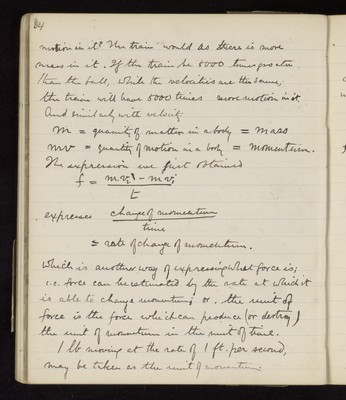 84
motion in it? The train would as there is more
mass in it. If the train be 5000 times greater
than the ball, while the velocities are the same,
the train will have 5000 times more motion in it.
And similarly with velocity.
m = quantity of matter in a body = mass
mv = quantity of motion in a body = momentum.
The expression we first obtained
f = mv, - mv,
t
expresses change of momentum
time
= rate of change of momentum.
Which is another way of expressing what force is;
i.e. force can be estimated by the rate at which it
is able to change momentum; or. the unit of
force is the force which can produce (or destroy)
the unit of momentum in the unit of time.
1 lb moving at the rate of 1 ft. per second,
may be taken as the unit of momentum.